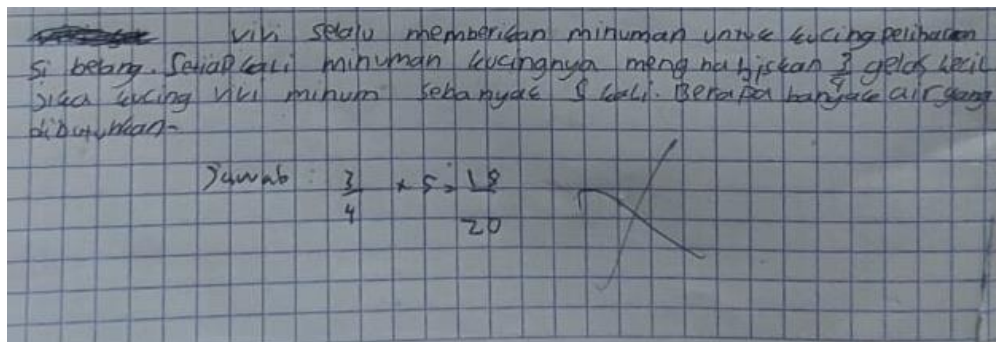 Vivi selalu memberikan minuman untuk kucing peliharaan
si belang. Setiap kali minuman kucingnya menghabiskan 3/4 gelas kecil
jika kucing vivi minum sebanyak 5 kali. Berapa banyak air yang
dibutuhkan-
Jawab : 3/4 × 5 = 15/20